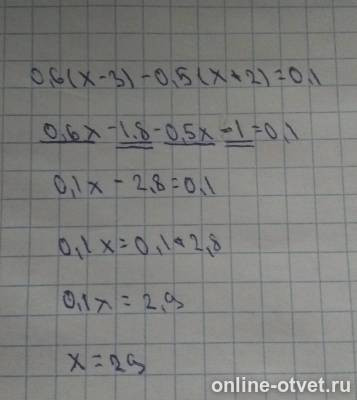 0,6(x-3)-0,5(x+2)=0,1
0,6x-1,8-0,5x-1=0,1
0,1x-2,8=0,1
0,1x=0,1+2,8
0,1x=2,9
x=29
online-otvet.ru